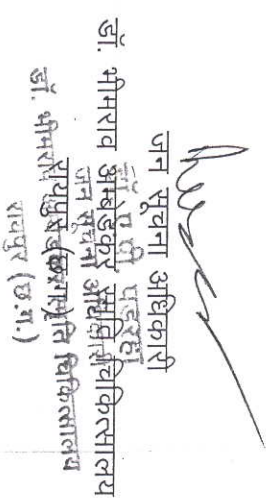 जन सूचना अधिकारी
डॉ. भीमराव अम्बेडकर स्मृति चिकित्सालय
रायपुर (छ.ग.)
जन सूचना अधिकारी
डॉ. भीमराव स्मृति चिकित्सालय
रायपुर (छ.ग.)